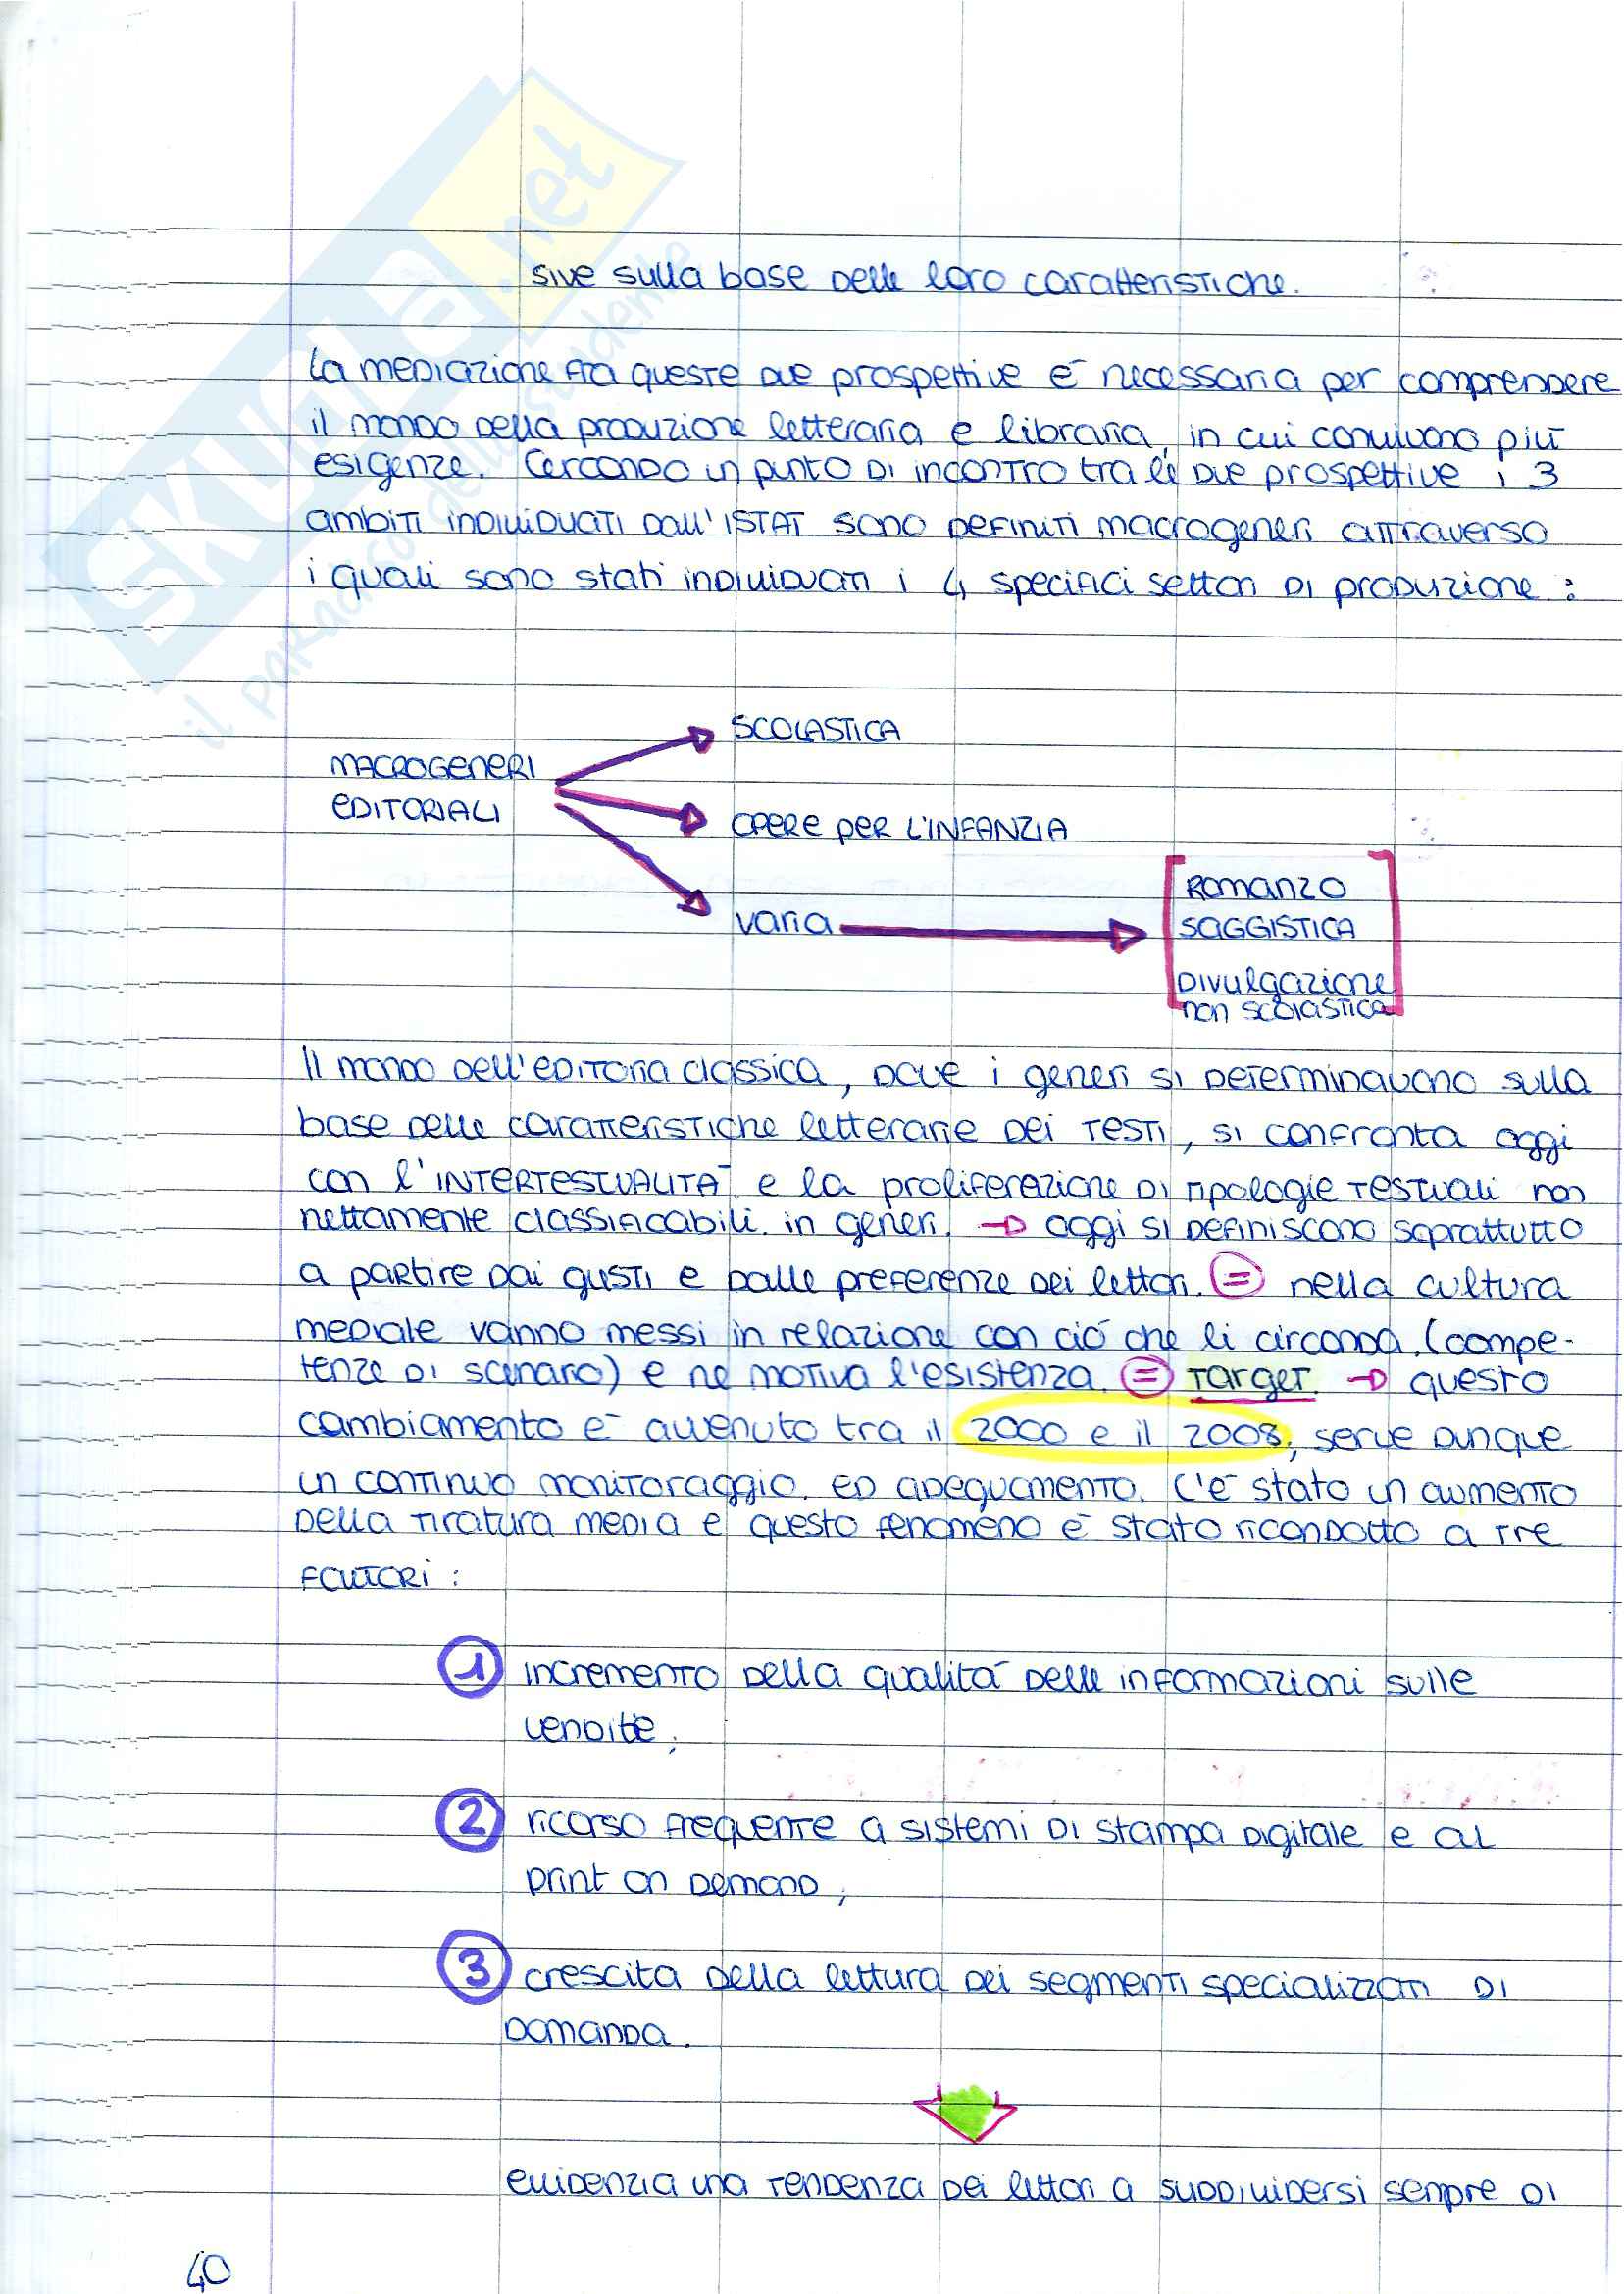 SKUOLA.net
il paradiso dello studente
sive sulla base delle loro caratteristiche.
La mediazione fra queste due prospettive è necessaria per comprendere
il mondo della produzione letteraria e libraria, in cui convivono più
esigenze. Cercando un punto di incontro tra le due prospettive i 3
ambiti individuati dall'ISTAT sono definiti macrogeneri attraverso
i quali sono stati individuati i 4 specifici settori di produzione :
MACROGENERI
EDITORIALI
SCOLASTICA
OPERE PER L'INFANZIA
varia
ROMANZO
SAGGISTICA
Divulgazione
non scolastica
Il mondo dell'editoria classica, dove i generi si determinavano sulla
base delle caratteristiche letterarie dei testi, si confronta oggi
con l'INTERTESTUALITÀ e la proliferazione di tipologie testuali non
nettamente classificabili in generi. → oggi si definiscono soprattutto
a partire dai gusti e dalle preferenze dei lettori. = nella cultura
mediale vanno messi in relazione con ciò che li circonda (compe-
tenze di scenario) e ne motiva l'esistenza. = Target. → questo
cambiamento è avvenuto tra il 2000 e il 2008, serve dunque
un continuo monitoraggio ed adeguamento. C'è stato un aumento
della tiratura media e questo fenomeno è stato ricondotto a tre
fattori :
1 incremento della qualità delle informazioni sulle
vendite;
2 ricorso frequente a sistemi di stampa digitale e al
print on demand;
3 crescita della lettura dei segmenti specializzati di
domanda.
evidenzia una tendenza dei lettori a suddividersi sempre di
40